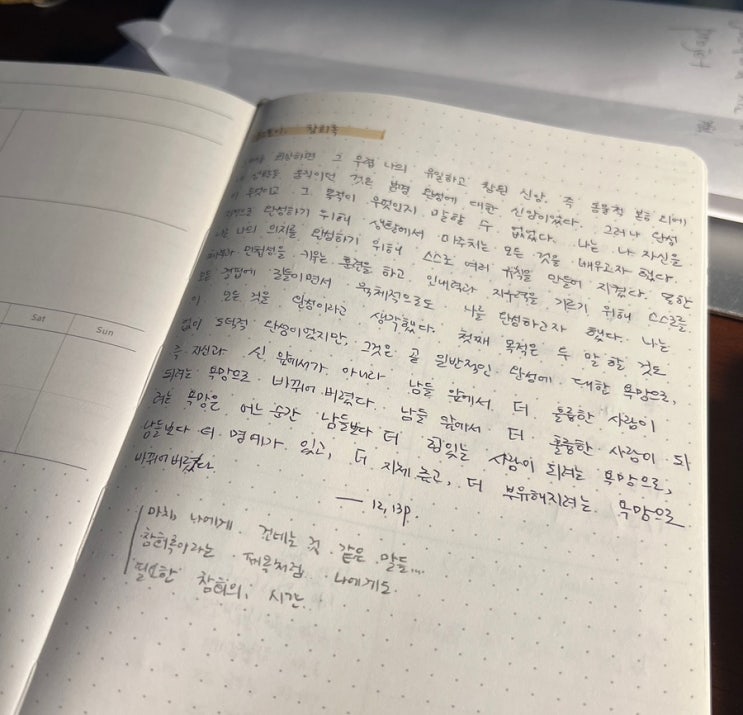 Sat
Sun
톨스토이, 참회록
회상하면 그 무렵 나의 유일하고 참된 신앙, 즉 동물적 본능 외에
움직이던 것은 분명 완성에 대한 신앙이었다. 그러나 완성
이 무엇이고 그 목적이 무엇인지 말할 수 없었다. 나는 나 자신을
완성하기 위해 생활에서 마주치는 모든 것을 배우고자 했다.
나의 의지를 완성하기 위해 스스로 여러 규칙을 만들어 지켰다. 또한
민첩성을 키우는 훈련을 하고 인내력과 지구력을 기르기 위해 스스로를
모든 결핍에 길들이면서 육체적으로도 나를 완성하고자 했다. 나는
이 모든 것을 완성이라고 생각했다. 첫째 목적은 두 말 할 것도
없이 도덕적 완성이었지만, 그것은 곧 일반적인 완성에 대한 욕망으로,
즉 자신과 신 앞에서가 아니라 남들 앞에서 더 훌륭한 사람이
되려는 욕망으로 바뀌어 버렸다. 남들 앞에서 더 훌륭한 사람이 되
려는 욕망은 어느 순간 남들보다 더 힘있는 사람이 되려는 욕망으로,
남들보다 더 명예가 있고, 더 지체 높고, 더 부유해지려는 욕망으로
바뀌어버렸다.
— 12, 13p.
마치 나에게 건네는 것 같은 말들...
참회록이라는 제목처럼 나에게도
필요한 참회의, 시간.